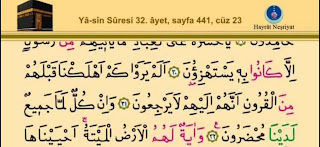 Yâ-sîn Sûresi 32. âyet, sayfa 441, cüz 23
Hayrât Neşriyat
خَامِدُونَ ﴿٢٩﴾ يَا حَسْرَةً عَلَى الْعِبَادِ مَا يَأْتِيهِمْ مِنْ رَسُولٍ
اِلَّا كَانُوا بِهِ يَسْتَهْزِؤُنَ ﴿٣٠﴾ اَلَمْ يَرَوْا كَمْ اَهْلَكْنَا قَبْلَهُمْ
مِنَ الْقُرُونِ اَنَّهُمْ اِلَيْهِمْ لَا يَرْجِعُونَ ﴿٣١﴾ وَاِنْ كُلٌّ لَمَّا جَمِيعٌ
لَدَيْنَا مُحْضَرُونَ ﴿٣٢﴾ وَاٰيَةٌ لَهُمُ الْاَرْضُ الْمَيْتَةُ اَحْيَيْنَاهَا